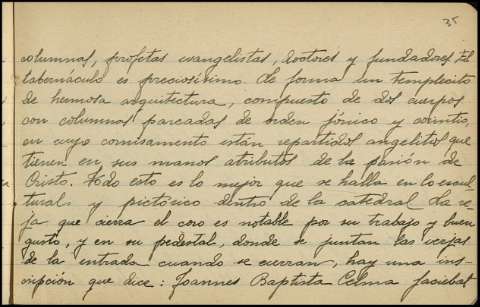 35
columnas, profetas evangelistas, doctores y fundadores. El
tabernáculo es preciosísimo. Le forma un templecito
de hermosa arquitectura, compuesto de dos cuerpos
con columnas pareadas de orden jónico y corintio,
en cuyo cornisamento están repartidos angelitos que
tienen en sus manos atributos de la pasión de
Cristo. Todo esto es lo mejor que se halla en lo escul
tural y pictórico dentro de la catedral. La re
ja que cierra el coro es notable por su trabajo y buen
gusto, y en su pedestal, donde se juntan las verjas
de la entrada cuando se cierran, hay una ins-
cripción que dice: Joannes Baptista Celma faciebat